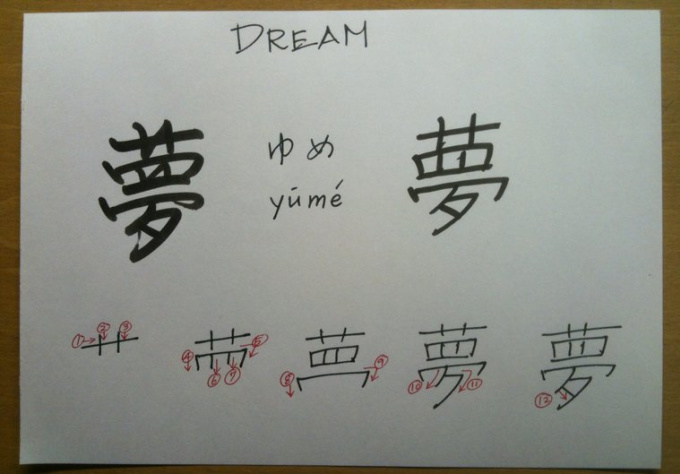 DREAM
夢 ゆめ 夢
yūmé
① ② ③ ④ ⑤ ⑥ ⑦ ⑧ ⑨ ⑩ ⑪ ⑫
夢 夢